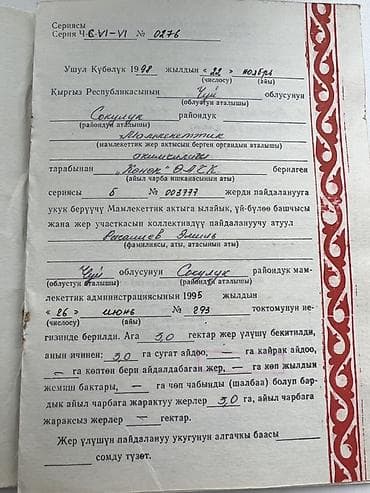 Сериясы
Серия Ч-6-VI-VI № 0276
Ушул Күбөлүк 1998 жылдын «22» ноябрь
(числосу) (айы)
Кыргыз Республикасынын Чүй облусунун
(облустун аталышы)
Сокулук райондук
(райондун аталышы)
Мамлекеттик
(мамлекеттик жер актысын берген органдын аталышы)
акимчилиги
тарабынан "Конок" берилген
(айыл чарба ишканасынын аты)
сериясы Б № 003777 жерди пайдаланууга
укук берүүчү Мамлекеттик актыга ылайык, үй-бүлөө башчысы
жана жер участкасын коллективдүү пайдалануучу атуул
(фамилиясы, аты, атасынын аты)
Чүй облусунун Сокулук райондук мам-
(облустун аталышы) (райондун аталышы)
лекеттик администрациясынын 1995 жылдын
«26» июнь № 293 токтомунун не-
(числосу) (айы)
гизинде берилди. Ага 3,0 гектар жер үлүшү бекитилди,
анын ичинен: 3,0 га сугат айдоо, — га кайрак айдоо,
— га көптөн бери айдалбаган жер, — га көп жылдык
жемиш бактары, — га чөп чабынды (шалбаа) болуп бар-
дык айыл чарбага жарактуу жерлер 3,0 га, айыл чарбага
жараксыз жерлер — гектар.
Жер үлүшүн пайдалануу укугунун алгачкы баасы
сомду түзөт.